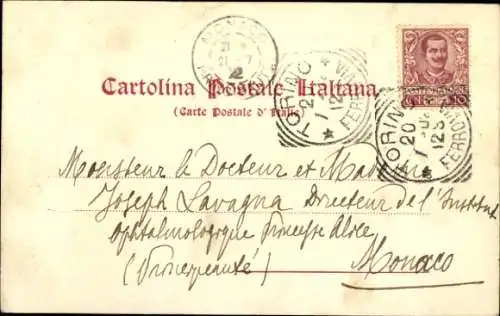 MONACO
21
2
Cartolina Postale Italiana
(Carte Postale d'Italie)
TORINO
FERROVIA
20
12 S
TORINO
FERROVIA
20
12 S
10
Monsieur le Docteur et Madame
Joseph Lavagna Directeur de l'Institut
Ophtalmologique Princesse Alice
(Principauté) Monaco